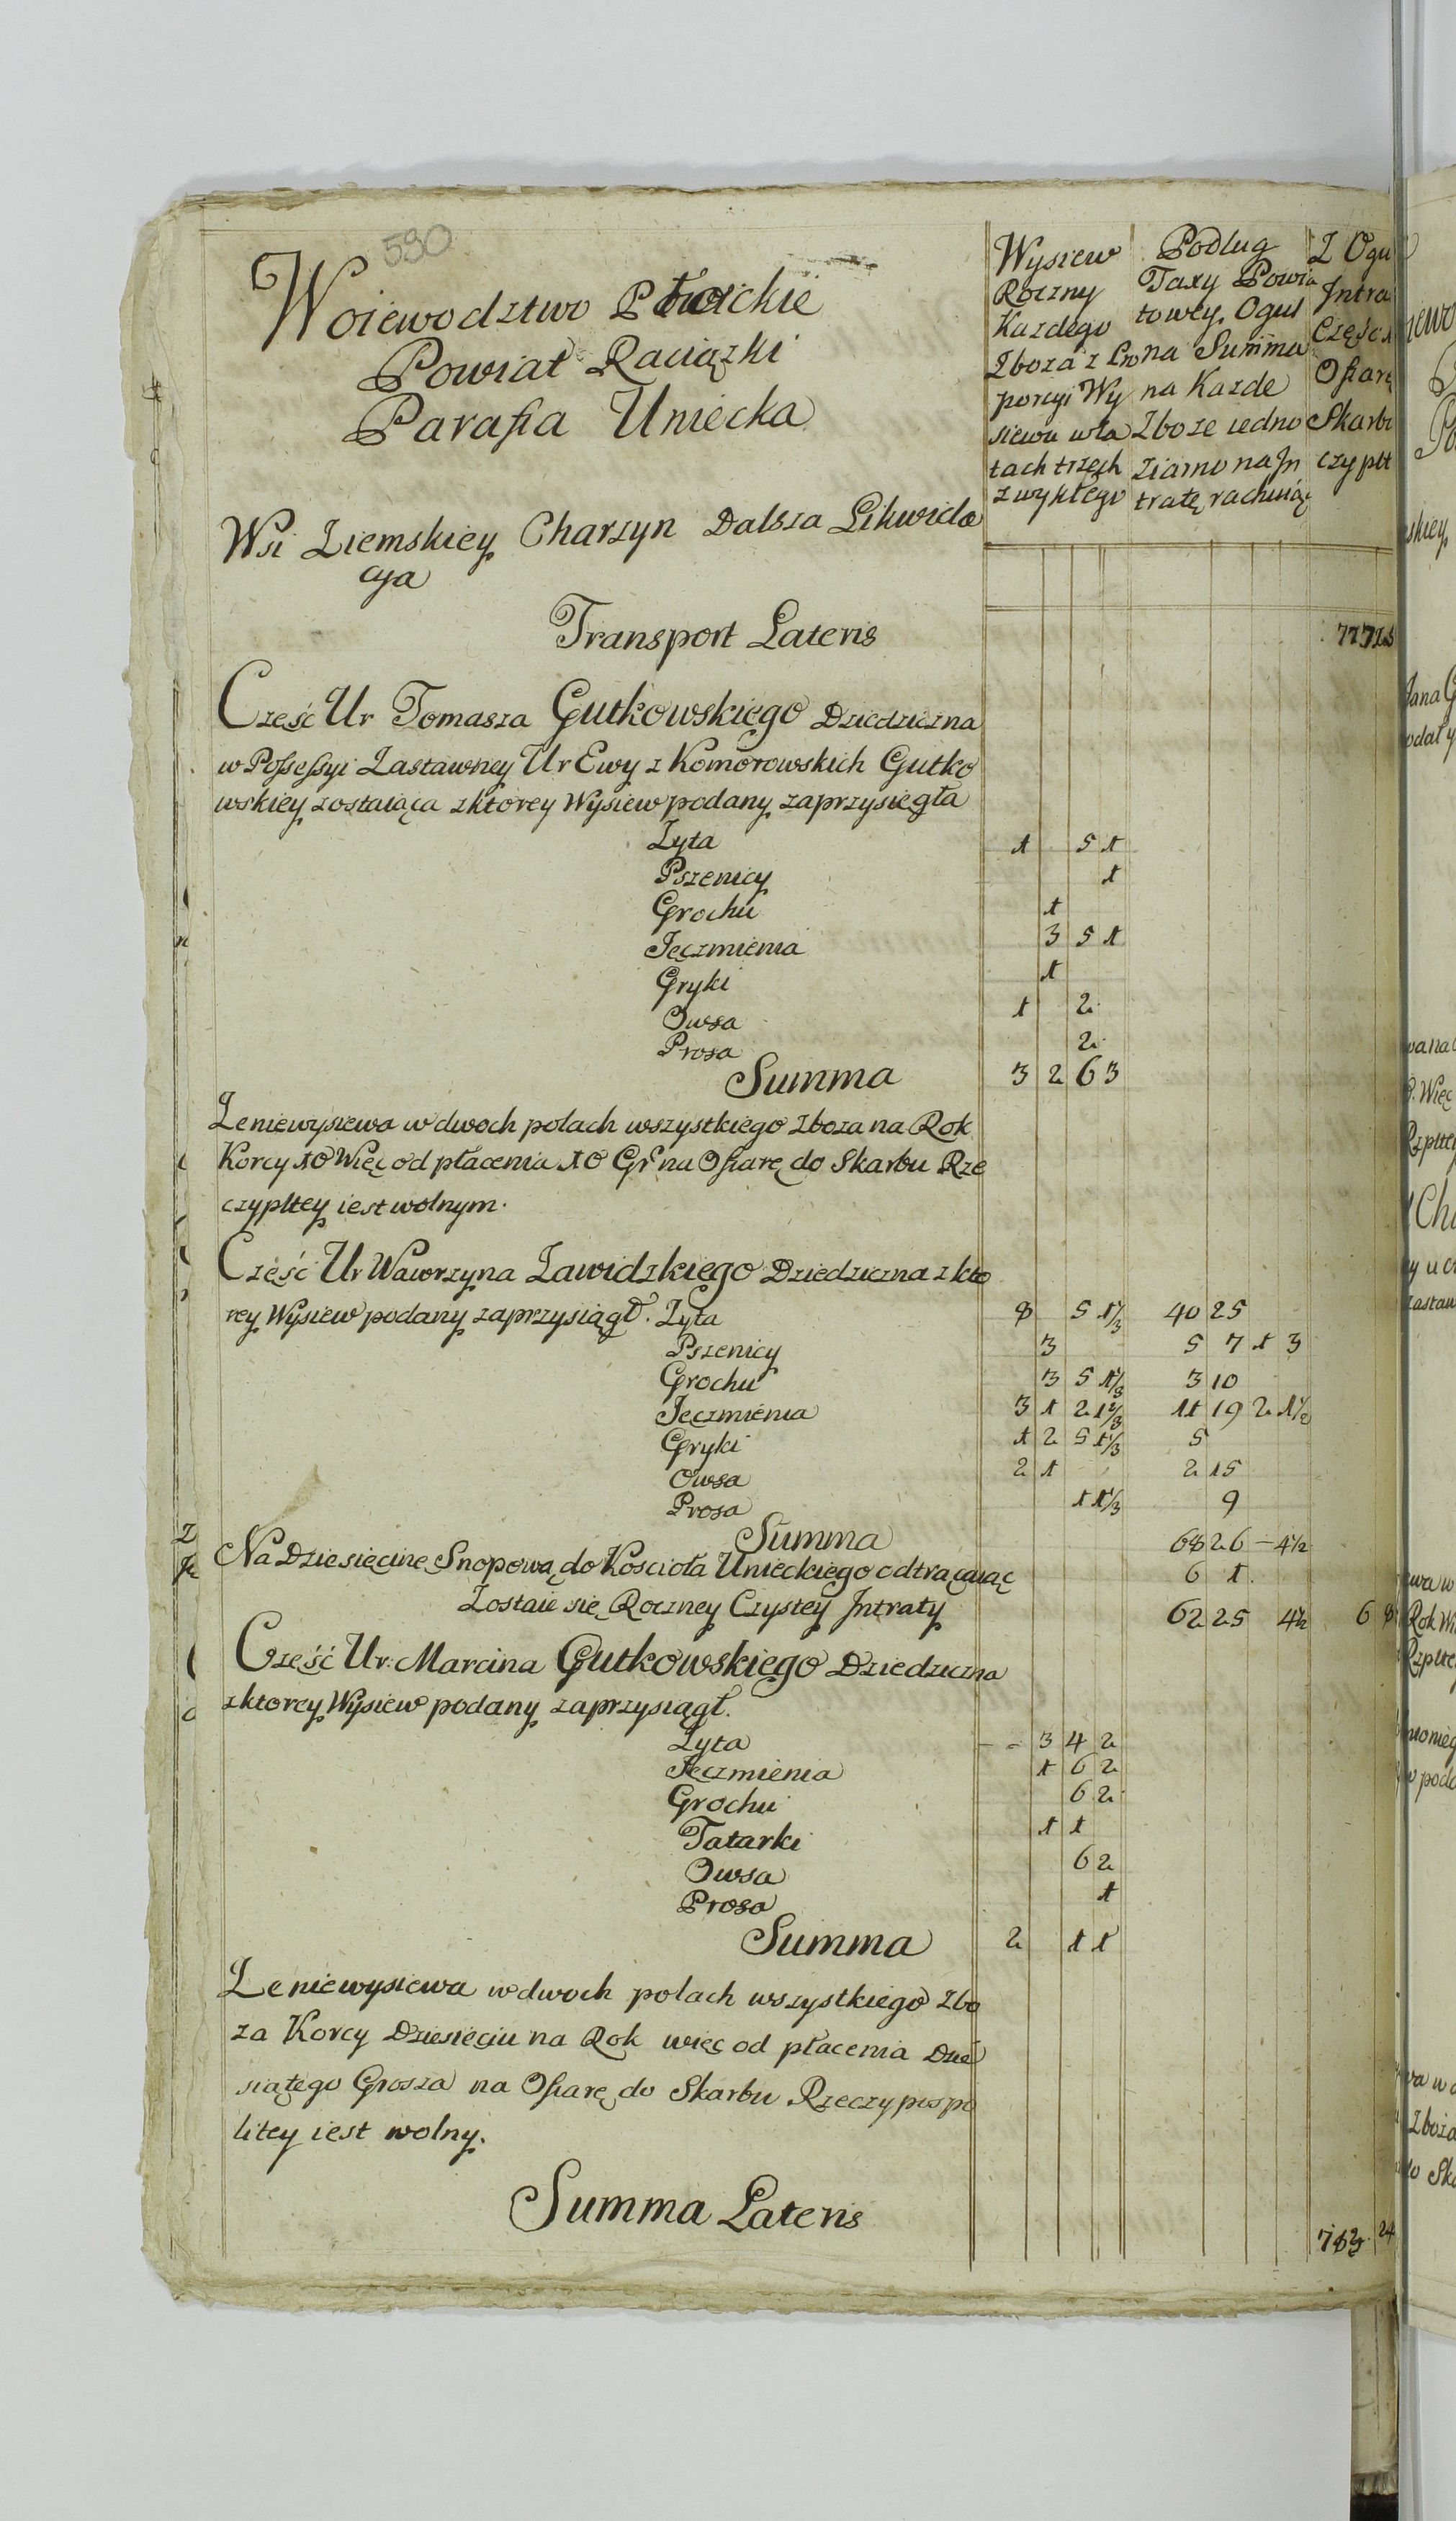 590
Woiewodztwo Płockie
Powiat Raciązki
Parafia Uniecka
Wysiew
Roczny
Kazdego
Zboza z Pro
porcyi Wy
siewu w la
tach trzech
zwykłego
Podlug
Taxy Powia
towey. Ogul
na Summa
na Kazde
Zboze iedno
ziarno na In
tratę rachuiąc
Z Ogu
Intra
Częśc
Ofiarę
Skarb
czyplt
Wsi Ziemskiey Charzyn Dalsza Likwida
cya
Transport Lateris
Cześć Ur Tomasza Gutkowskiego Dziedziczna
w Possessyi Zastawney Ur Ewy z Komorowskich Gutko
wskiey zostaiąca z ktorey Wysiew podany zaprzysięgła
Zyta 1 5 1
Pszenicy 1
Grochu 1
Jęczmienia 3 5 1
Gryki 1
Owsa 1 2
Prosa 2
Summa 3 2 6 3
Ze niewysiewa w dwoch polach wszystkiego Zboza na Rok
Korcy 10 Więc od płacenia 10 Gr na Ofiarę do Skarbu Rze
czypltey iest wolnym.
Część Ur Wawrzyna Zawidzkiego Dziedziczna z kto
rey Wysiew podany zaprzysiągł. Zyta 8 5 1 1/3 40 25
Pszenicy 3 5 7 1 3
Grochu 3 5 1 1/3 3 10
Jęczmienia 3 1 2 1 2/3 11 19 2 1 1/2
Gryki 1 2 5 1 1/3 5
Owsa 2 1 2 15
Prosa 1 1 1/3 9
Summa 68 26 – 4 1/2
Na Dziesięcinę Snopową do Kościoła Unieckiego odtrącaiąc 6 1.
Zostaie się Roczney Czystey Intraty 62 25 4 1/2 6 8
Cześć Ur: Marcina Gutkowskiego Dziedziczna
z ktorey Wysiew podany zaprzysiągł.
Zyta – – 3 4 2
Jęczmienia 1 6 2
Grochu 6 2
Tatarki 1 1
Owsa 6 2
Prosa 1
Summa 2 1 1
Ze niewysiewa w dwoch polach wszystkiego Zbo
za Korcy Dziesięciu na Rok więc od płacenia Dzie
siątego Grosza na Ofiarę do Skarbu Rzeczypospo
litey iest wolny.
Summa Lateris